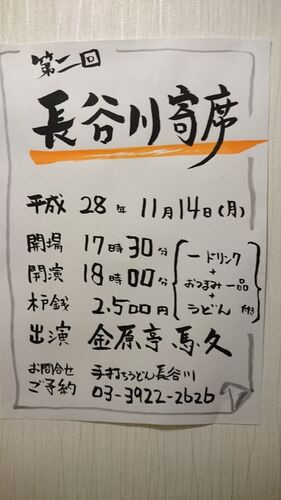 第二回
長谷川寄席
平成 28年 11月14日(月)
開場 17時30分
開演 18時00分
木戸銭 2,500円
一ドリンク
+
おつまみ一品
+
うどん 付
出演 金原亭馬久
お問合せ
ご予約
手打ちうどん長谷川
03-3922-2626